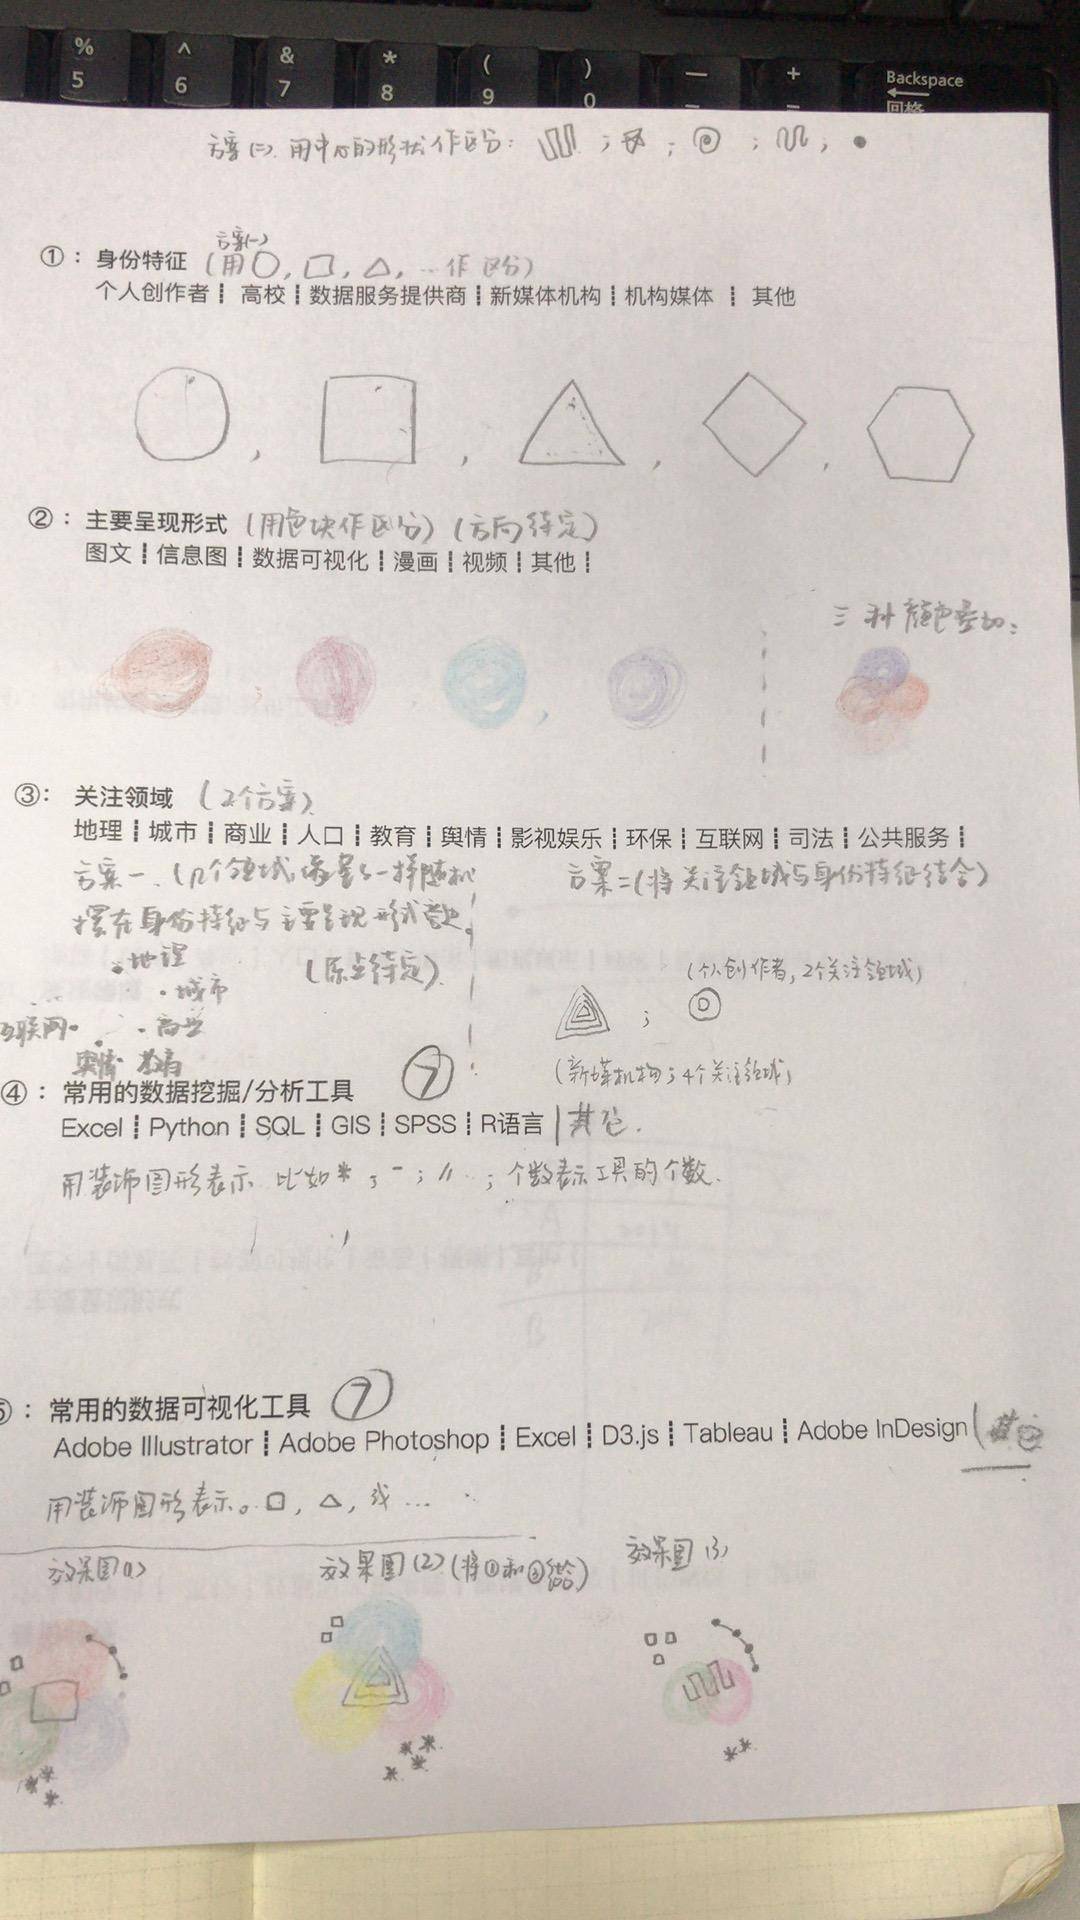 % ^ & * ( ) — + Backspace
5 6 7 8 9 0 – = 回格
方案(二). 用中心的形状作区分:
方案(一)
①: 身份特征 (用○, □, △, …作区分)
个人创作者 | 高校 | 数据服务提供商 | 新媒体机构 | 机构媒体 | 其他
②: 主要呈现形式 (用色块作区分) (方向待定)
图文 | 信息图 | 数据可视化 | 漫画 | 视频 | 其他 |
三种颜色叠加:
③: 关注领域 (2个方案)
地理 | 城市 | 商业 | 人口 | 教育 | 舆情 | 影视娱乐 | 环保 | 互联网 | 司法 | 公共服务 |
方案一. (几个领域像星星一样随机
摆在身份特征与主要呈现形式旁边.
(原点待定)
·地理
·城市
互联网· ·商业
舆情 教育
方案二(将关注领域与身份特征结合)
(个人创作者, 2个关注领域)
(新媒机构; 4个关注领域)
④: 常用的数据挖掘/分析工具 ⑦
Excel | Python | SQL | GIS | SPSS | R语言 | 其它.
用装饰图形表示 比如 * ; - ; // …; 个数表示工具的个数.
⑤: 常用的数据可视化工具 ⑦
Adobe Illustrator | Adobe Photoshop | Excel | D3.js | Tableau | Adobe InDesign | 其它
用装饰图形表示。□, △, 或 …
效果图(1) 效果图(2) (将①和③结合) 效果图(3)